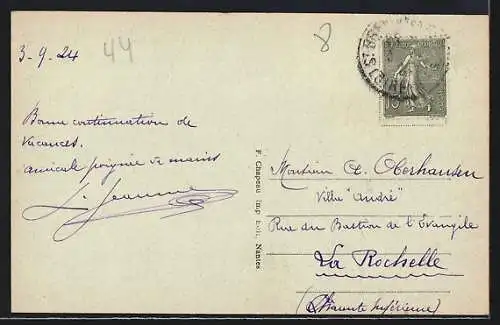 3-9-24
44
8
Bonne continuation de
vacances.
amicale poignée de mains
L. Jeanne
F. Chapeau imp. édit., Nantes
15
Monsieur A. Oberhansen
Villa "André"
Rue du Bastion de l'Evangile
La Rochelle
(Charente Inférieure)